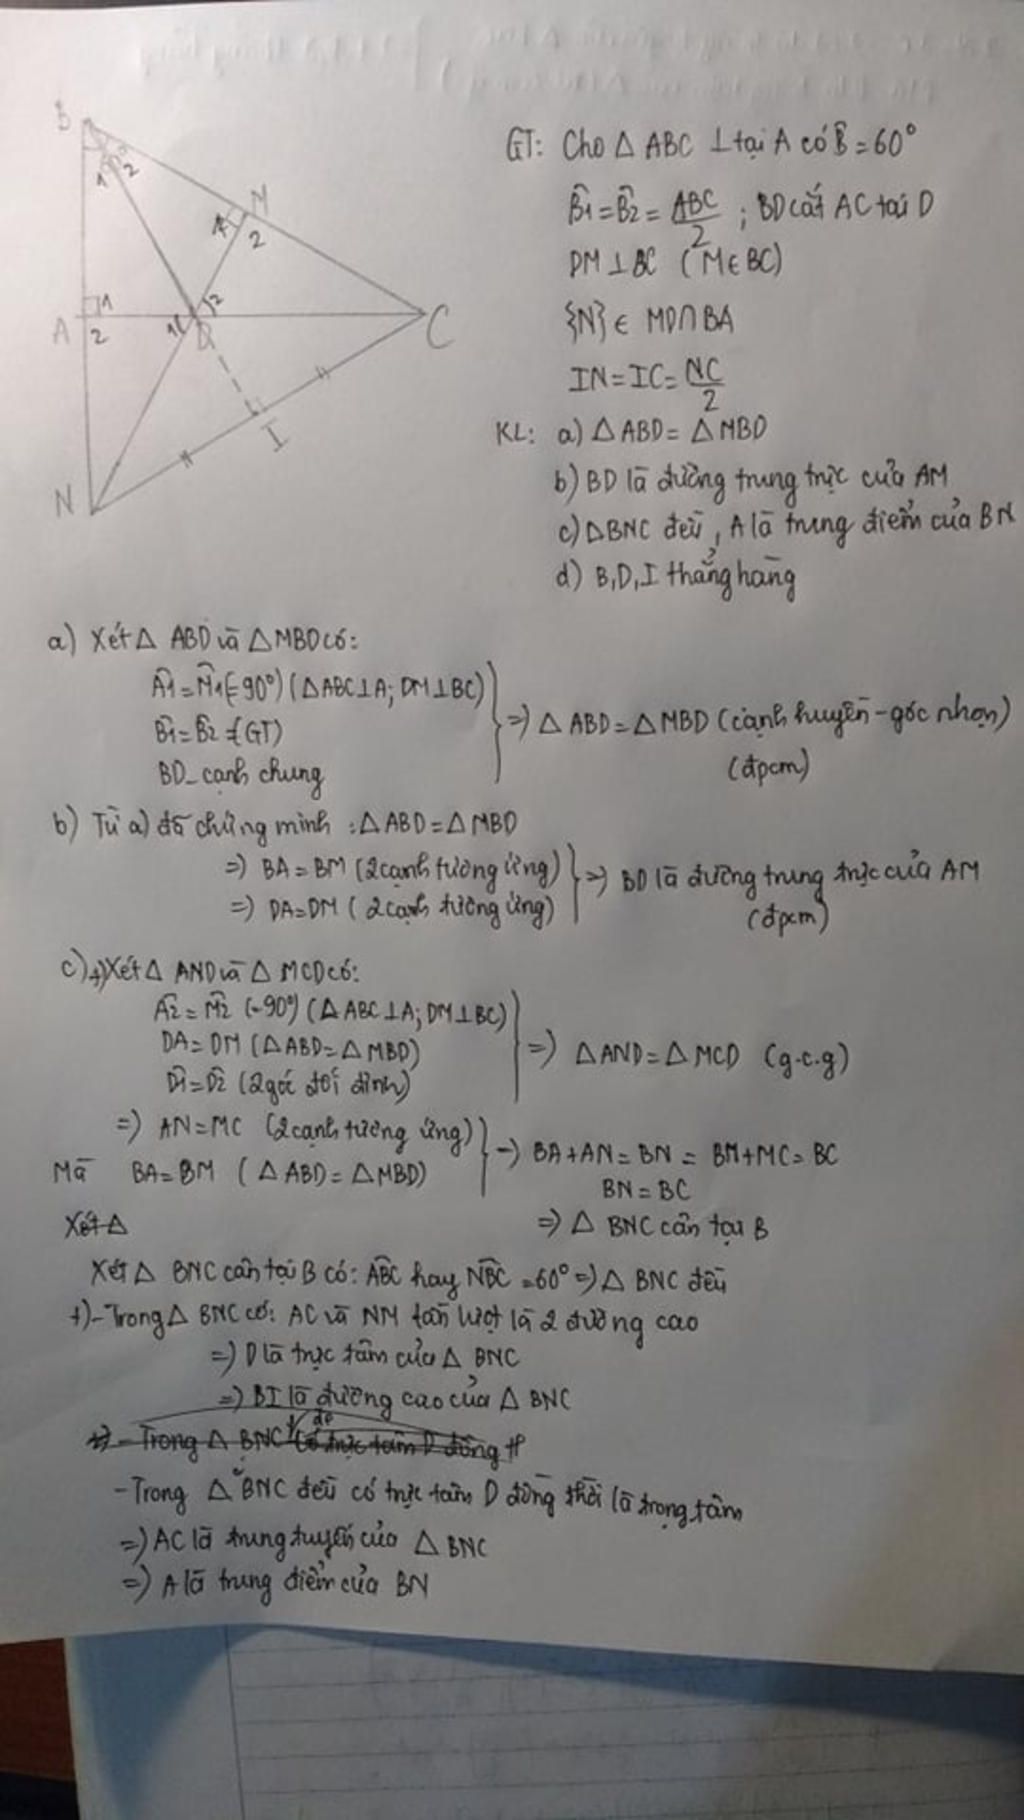 B
1 2
M
1
2
1
A
2
1 2
D
C
I
N
GT: Cho △ ABC ⊥ tại A có B̂ = 60°
B̂1 = B̂2 = ABC/2 ; BD cắt AC tại D
DM ⊥ BC (M ∈ BC)
{N} ∈ MD ∩ BA
IN = IC = NC/2
KL: a) △ ABD = △ MBD
b) BD là đường trung trực của AM
c) △ BNC đều, A là trung điểm của BN
d) B, D, I thẳng hàng
a) Xét △ ABD và △ MBD có:
Â1 = M̂1 (= 90°) (△ ABC ⊥ A; DM ⊥ BC)
B̂1 = B̂2 = (GT)
BD_cạnh chung
=> △ ABD = △ MBD (cạnh huyền - góc nhọn)
(đpcm)
b) Từ a) đã chứng minh : △ ABD = △ MBD
=> BA = BM (2 cạnh tương ứng)
=> DA = DM (2 cạnh tương ứng)
=> BD là đường trung trực của AM
(đpcm)
c) +) Xét △ AND và △ MCD có:
Â2 = M̂2 (= 90°) (△ ABC ⊥ A; DM ⊥ BC)
DA = DM (△ ABD = △ MBD)
D̂1 = D̂2 (2 góc đối đỉnh)
=> △ AND = △ MCD (g.c.g)
=> AN = MC (2 cạnh tương ứng)
Mà BA = BM (△ ABD = △ MBD)
=> BA + AN = BN = BM + MC = BC
BN = BC
Xét △
=> △ BNC cân tại B
Xét △ BNC cân tại B có: ABC hay NBC = 60° => △ BNC đều
+) - Trong △ BNC có: AC và NM lần lượt là 2 đường cao
=> D là trực tâm của △ BNC
=> BI là đường cao của △ BNC
- Trong △ BNC có trực tâm D đồng
- Trong △ BNC đều có trực tâm D đồng thời là trọng tâm
=> AC là trung tuyến của △ BNC
=> A là trung điểm của BN